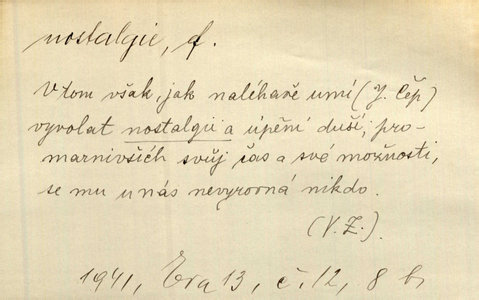 nostalgie, f.
V tom však, jak naléhavě umí (J. Čep)
vyvolat nostalgii a úpění duší, pro-
marnivších svůj čas a své možnosti,
se mu u nás nevyrovná nikdo.
(V. Z.)
1941, Eva 13, č. 12, 8 b